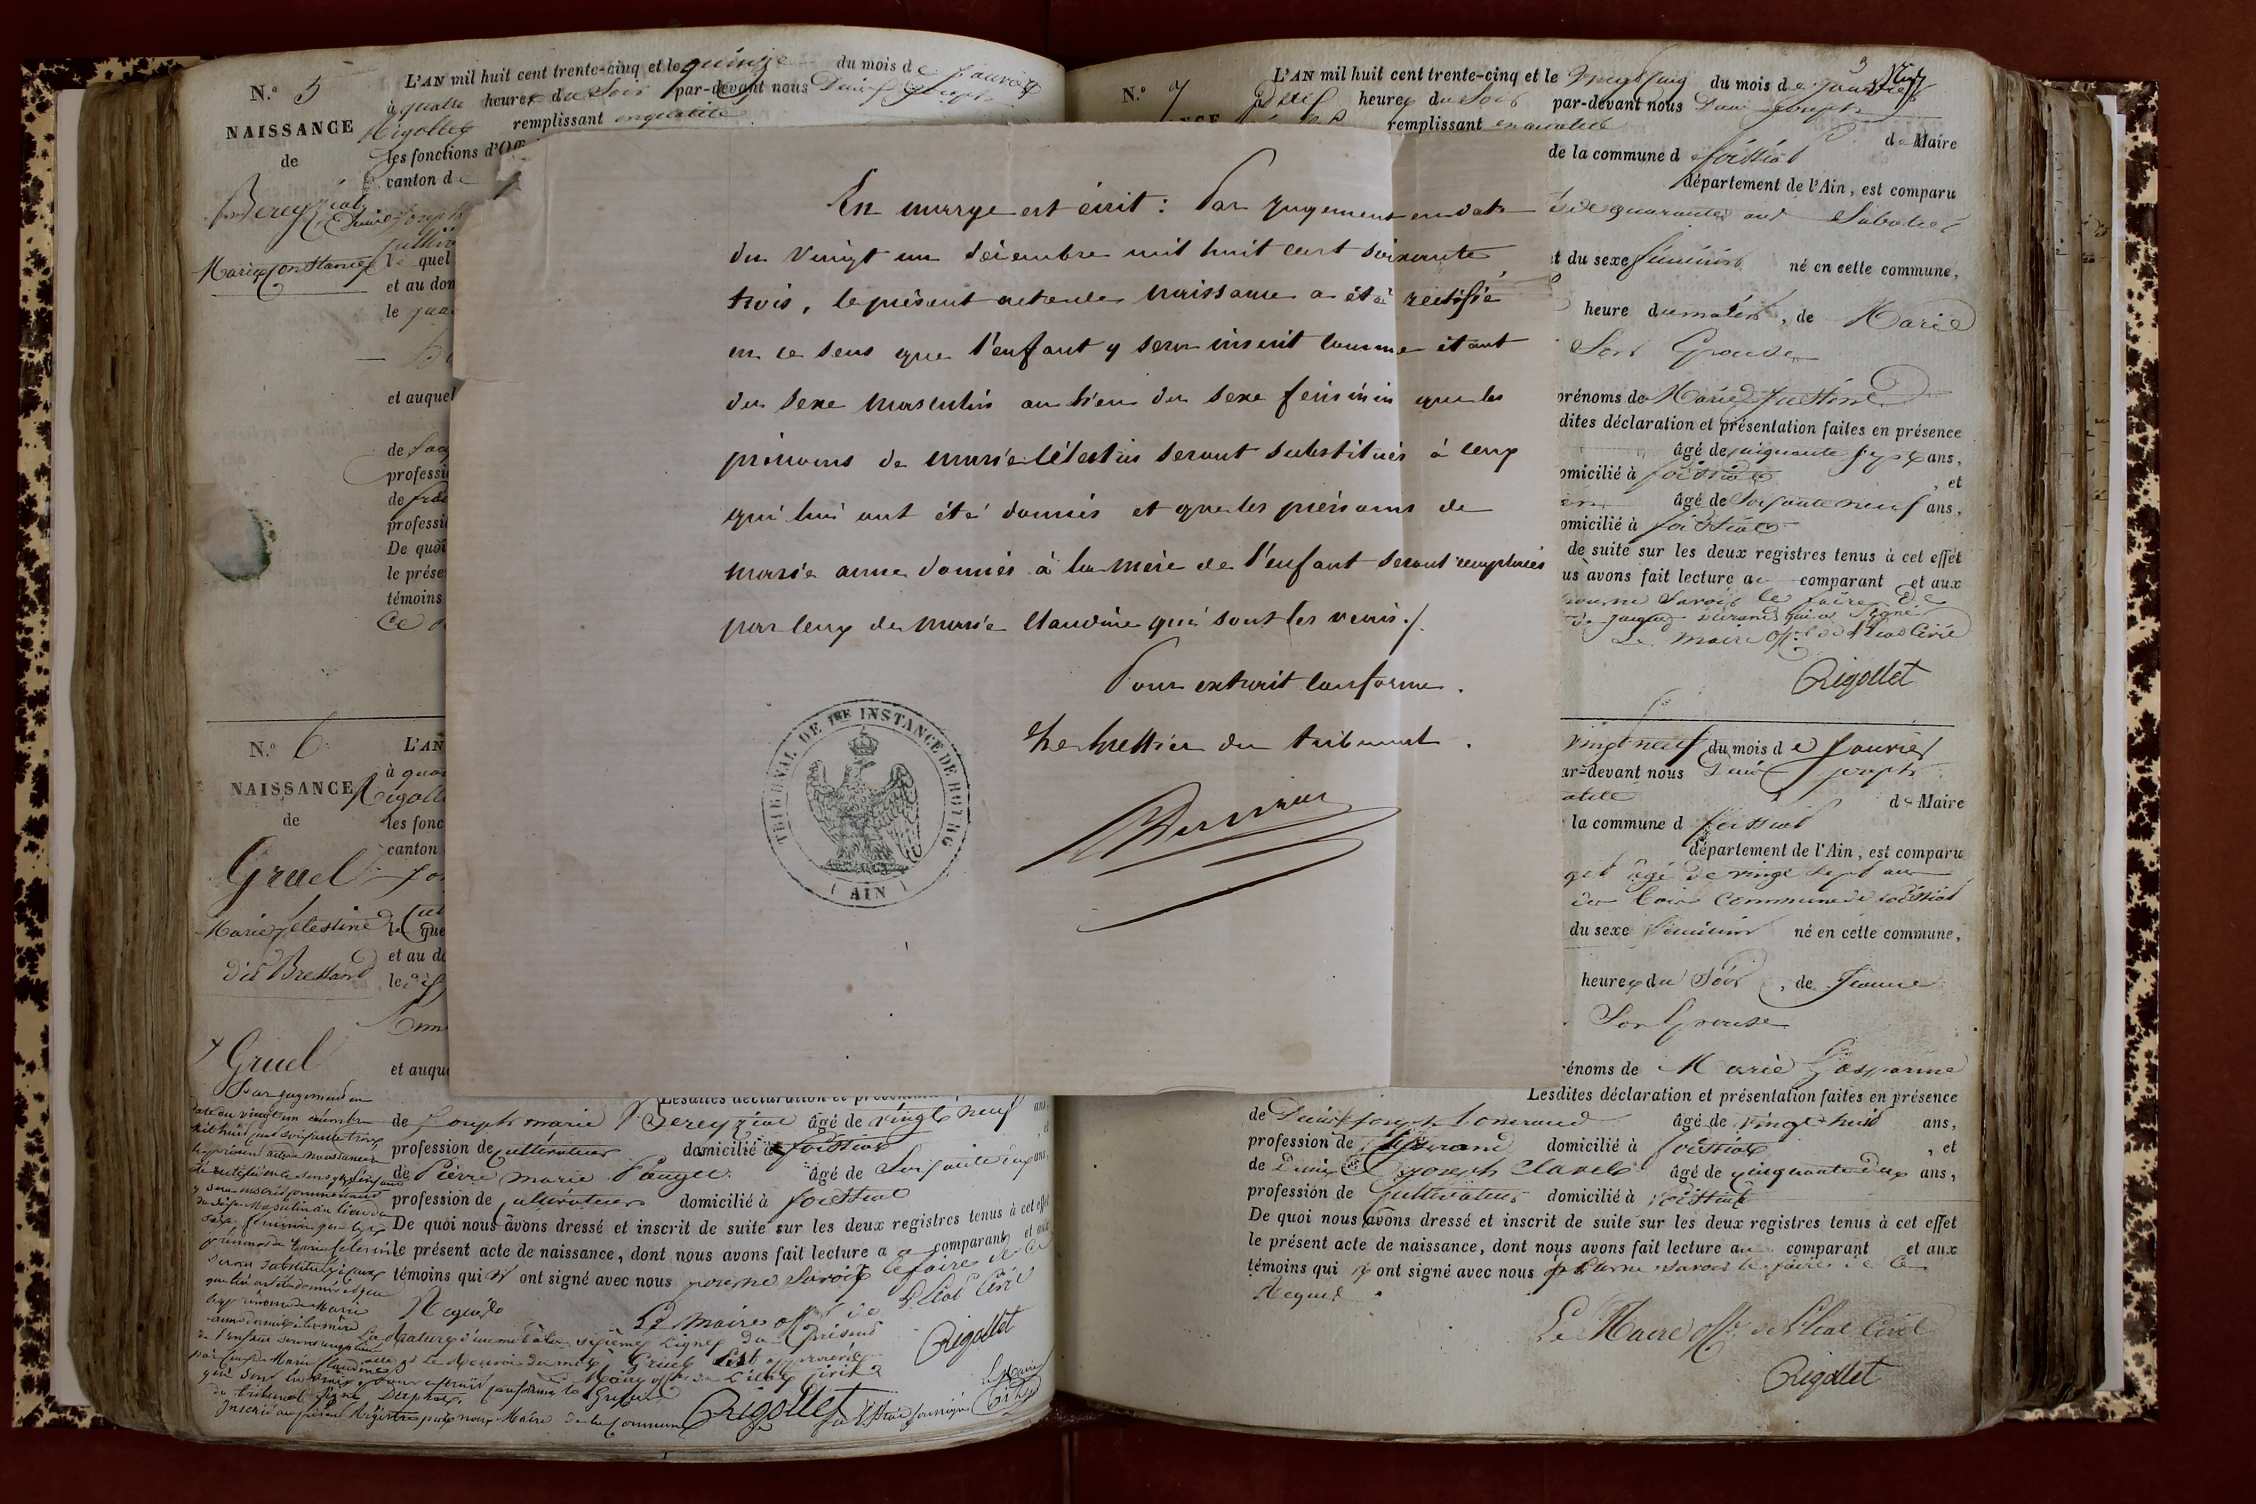 N.º 5
NAISSANCE
de
Bereyziat
Marie Constance
L'AN mil huit cent trente-cinq et le quinze du mois de janvier
à quatre heures du soir par-devant nous Denis Joseph
Rigollet remplissant en qualité
les fonctions d'Of
canton de
quel
et au dom
le
et auquel
de
profession
de
profession
De quoi
le présent
témoins
N.º 6
NAISSANCE
de
Gruel
Marie Celestine
dit Bressand
L'AN
à quatre
Rigollet
les fonc
canton
le quel
et au do
le
et auquel
Gruel
Par jugement en
date du vingt un décembre
mil huit cent soixante trois,
le présent acte de naissance a
été rectifié en ce sens que l'enfant
y sera inscrit comme étant
du sexe Masculin au lieu du
sexe féminin que les
prénoms de Marie Célestin
seront substitués à ceux
qui lui ont été donnés et que
les prénoms de Marie
anne donnés à la mère
de l'enfant seront remplacés
par ceux de Marie Claudine
qui sont les vrais pour extrait conforme le Greffier
du tribunal signé
Inscrit au présent Registre par nous Maire de la Commune
Lesdites déclaration et
de Joseph marie Bereyziat âgé de vingt neuf ans,
profession de cultivateur domicilié à foissiat
de Pierre marie Pauget âgé de Soixante
profession de cultivateur domicilié à foissiat
De quoi nous avons dressé et inscrit de suite sur les deux registres tenus à cet effet
le présent acte de naissance, dont nous avons fait lecture au comparant et aux
témoins qui n'ont signé avec nous pour ne savoir le faire de ce
Requis
Le Maire off. de l'Etat Civil
Rigollet
Rigollet
En marge est écrit : Par jugement en date
du vingt un décembre mil huit cent soixante
trois, le présent acte de naissance a été rectifié
en ce sens que l'enfant y sera inscrit comme étant
du sexe masculin au lieu du sexe féminin que les
prénoms de marie célestin seront substitués à ceux
qui lui ont été donnés et que les prénoms de
marie anne donnés à la mère de l'enfant seront remplacés
par ceux de marie claudine qui sont les vrais ./.
Pour extrait conforme.
Le Greffier du tribunal.
TRIBUNAL DE 1RE INSTANCE DE BOURG
( AIN )
N.º 7
L'AN mil huit cent trente-cinq et le vingt cinq du mois de janvier
heures du soir par-devant nous Denis Joseph
remplissant en qualité
de Maire
de la commune de foissiat
département de l'Ain, est comparu
de quarante ans Sabotier
et du sexe féminin né en cette commune,
heure du matin, de Marie
Son Epouse
prénoms de Marie Justine
dites déclaration et présentation faites en présence
âgé de cinquante sept ans,
domicilié à foissiat, et
âgé de Soixante neuf ans,
domicilié à foissiat
de suite sur les deux registres tenus à cet effet
nous avons fait lecture au comparant et aux
pour ne savoir le faire de
Le maire off. de l'Etat Civil
Rigollet
vingt neuf du mois de janvier
par-devant nous Denis Joseph
de Maire
la commune de foissiat
département de l'Ain, est comparu
âgé de vingt sept ans
commune de foissiat
du sexe féminin né en cette commune,
heures du Soir, de Jeanne
Son Epouse
prénoms de Marie Gasparine
Lesdites déclaration et présentation faites en présence
de Denis Joseph âgé de vingt huit ans,
profession de domicilié à foissiat, et
de Denis Joseph Clavel âgé de cinquante deux ans,
profession de Cultivateur domicilié à foissiat
De quoi nous avons dressé et inscrit de suite sur les deux registres tenus à cet effet
le présent acte de naissance, dont nous avons fait lecture au comparant et aux
témoins qui n'ont signé avec nous pour ne savoir le faire de ce
Requis
Le Maire off. de l'Etat Civil
Rigollet